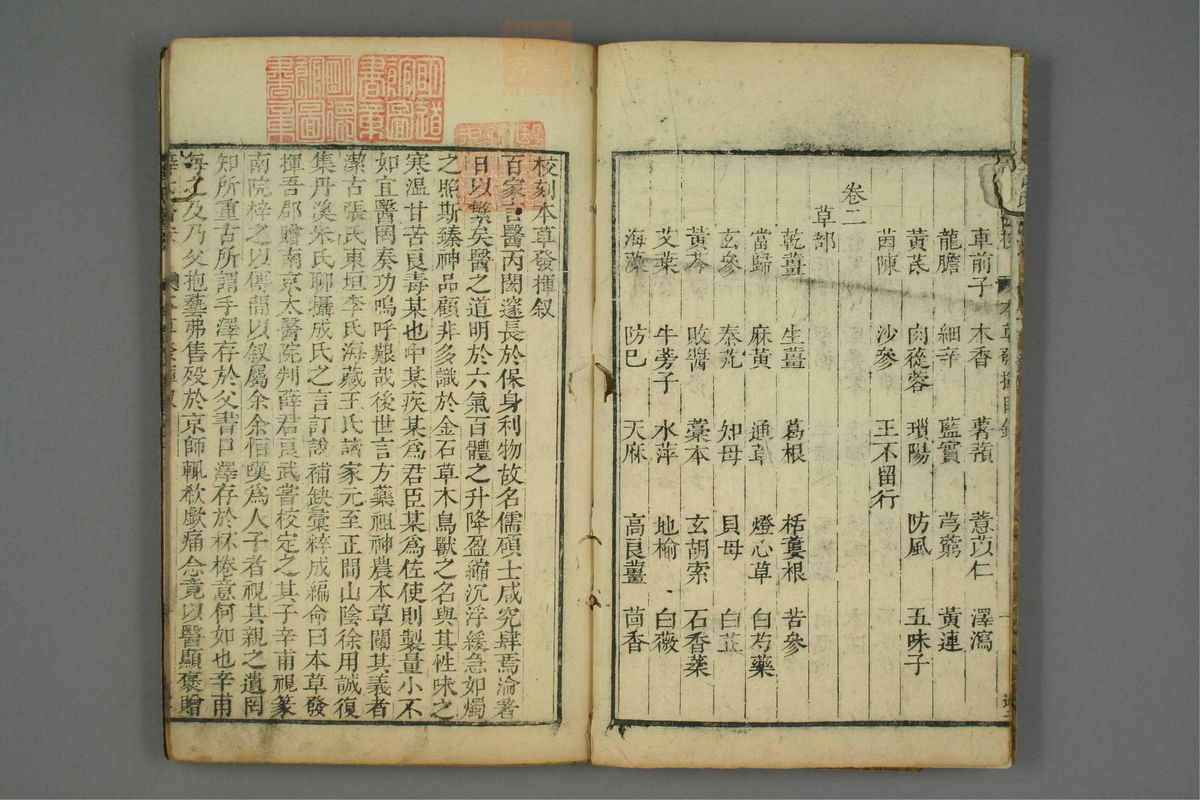 車前子 木香 薯蕷 薏苡仁 澤瀉
龍膽 細辛 藍實 芎藭 黃連
黃芪 肉蓯蓉 瑣陽 防風 五味子
茵陳 沙參 王不留行
卷二
草部
乾薑 生薑 葛根 栝蔞根 苦參
當歸 麻黃 通草 燈心草 白芍藥
玄參 秦艽 知母 貝母 白芷
黃芩 敗醬 藁本 玄胡索 石香葇
艾葉 牛蒡子 水萍 地榆 白薇
海藻 防巳 天麻 高良薑 茴香
校刻本草發揮叙
百家言醫內閎邃長於保身利物故名儒碩士咸究肆焉論著
日以繁矣醫之道明於六氣百體之升降盈縮沉浮緩急如燭
之照斯臻神品顧非多識於金石草木鳥獸之名與其性味之
寒温甘苦良毒某也中某疾某爲君臣某爲佐使則製量小不
如宜醫罔奏功嗚呼艱哉後世言方藥祖神農本草闡其義者
潔古張氏東垣李氏海藏王氏諸家元至正間山陰徐用誠復
集丹溪朱氏聊攝成氏之言訂說補缺彙粹成編命曰本草發
揮吾郡贈南京太醫院判薛君良武嘗校定之其子辛甫視篆
南院梓之以傳謂以叙屬余余恒嘆爲人子者視其親之遺罔
知所重古所謂手澤存於父書口澤存於杯棬意何如也辛甫
每之及乃父抱藝弗售歿於京師輒欷歔痛念竟以醫顯褒贈